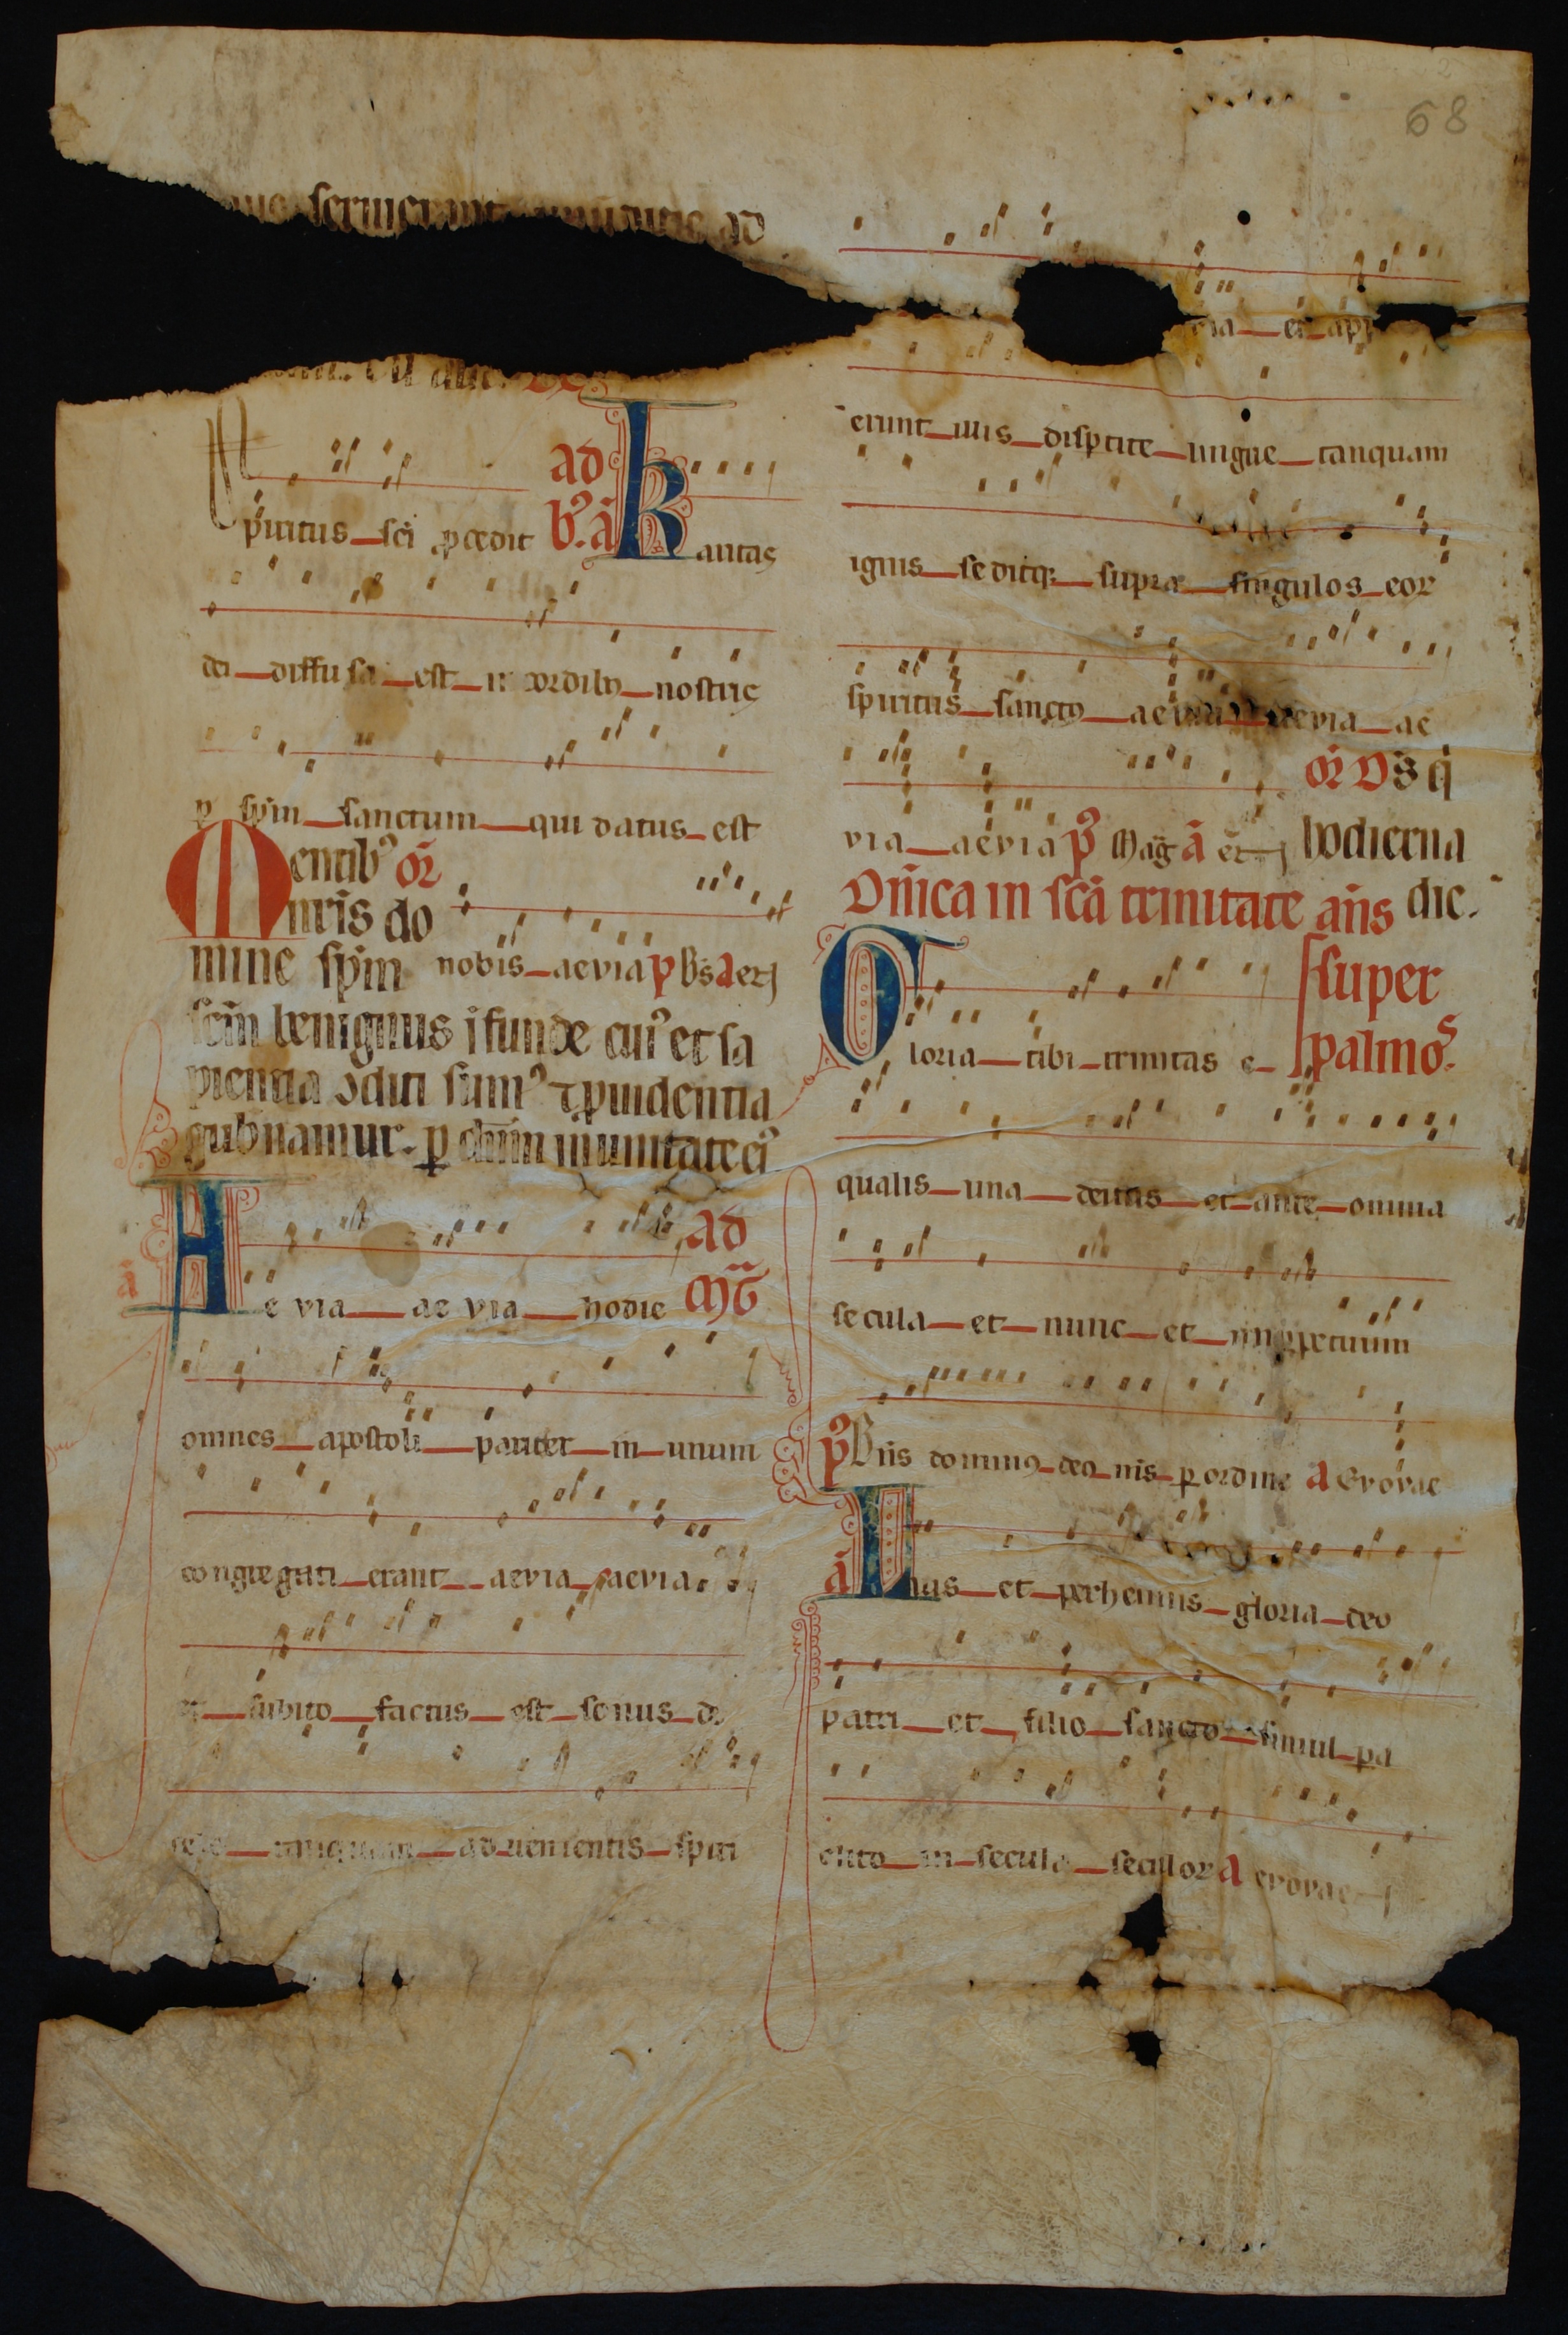 68
seruierunt ad
Spiritus sci ꝓcedit
ad
b̾. ā Karitas
dei diffusa est in cordibꝰ nostris
ꝑ spm̄ sanctum qui datus est
Mentibꝰ or̄
nr̄is do
nobis aeuia p̄ b̄s a et
mine spm̄
scm̄ benignus ifunde cuiꝰ et sa
pientia ꝯditi sumꝰ ⁊ ꝓuidentia
gub̄namur. ꝑ dnm̄ in unitate eiꝰ
ad
mḡ
ā Ae via ae via hodie
omnes apostoli pariter in unum
congregati erant aevia aevia
et subito factus est sonus de
celo tanquam aduenientis spiri
via et app
erunt illis disꝑtite lingue tanquam
ignis seditqꝫ supra singulos eor
spiritus sanctꝰ aevia aevia ae
or̄ Ds̄ q̄
via aevia p̄ Mag̃ ā et hodierna
Dn̄ica in scā trinitate an̄s die.
super
psalmoˢ.
Gloria tibi trinitas e
qualis una deitas et ante omnia
secula et nunc et inꝑpetuum
p̄ Dn̄s dominꝰ deꝰ nr̄s ꝑ ordine a Evovae
ā Laus et perhennis gloria deo
patri et filio sancto simul pa
clito in secula seculor a evovae